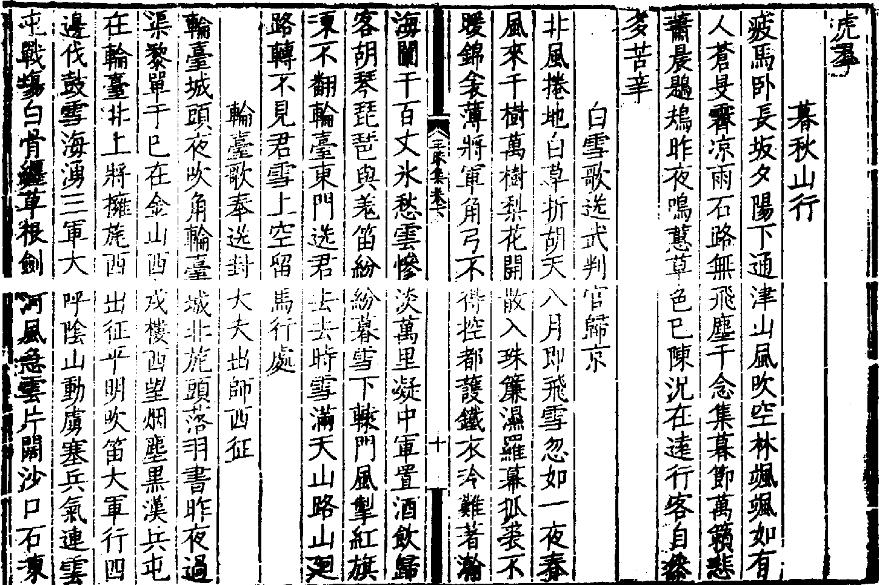 虎羣
暮秋山行
疲馬卧長坂夕陽下通津山風吹空林颯颯如有
人蒼旻霽凉雨石路無飛塵千念集暮節萬籟悲
蕭晨鶗鴂昨夜鳴蕙草色已陳況在遠行客自然
多苦辛
白雪歌送武判官歸京
北風捲地白草折胡天八月即飛雪忽如一夜春
風來千樹萬樹梨花開散入珠簾濕羅幕狐裘不
暖錦衾薄將軍角弓不得控都護鐵衣冷難著瀚
集卷
十
海闌干百丈氷愁雲慘淡萬里凝中軍置酒飲歸
客胡琴琵琶與羗笛紛紛暮雪下轅門風掣紅旗
凍不翻輪臺東門送君去去時雪滿天山路山廻
路轉不見君雪上空留馬行處
輪臺歌奉送封大夫出師西征
輪臺城頭夜吹角輪臺城北旄頭落羽書昨夜過
渠黎單于已在金山西戍樓西望烟塵黑漢兵屯
在輪臺北上將擁旄西出征平明吹笛大軍行四
邊伐鼓雪海湧三軍大呼陰山動虜塞兵氣連雲
屯戰塲白骨纏草根劍河風急雲片闊沙口石凍